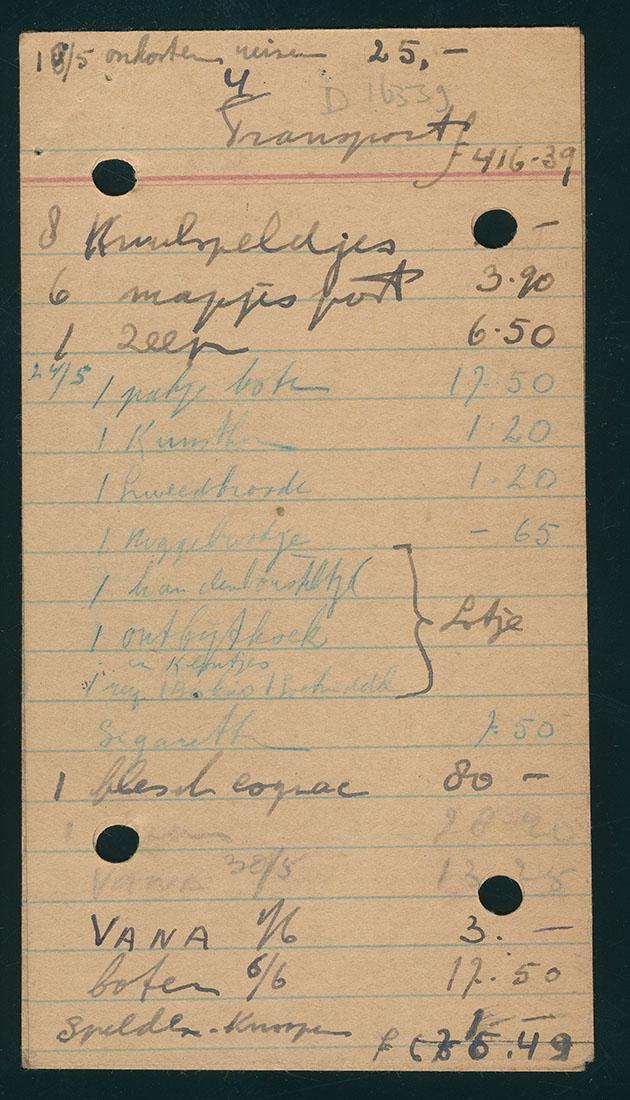 18/5 onkosten reisen 25,-
4
D 16339
Transport f 416-39
8 Krulspeldjes -
6 mapjes port 3.90
1 Zeep 6.50
24/5 1 pakje boter 17.50
1 Kunsth 1.20
1 Zweedbroode 1.20
1 Roggebrodje - 65
1 handenborsteltje
1 ontbijtkoek Lotje
en Kentjes
1
Sigarett 7.50
1 flesch cognac 80 -
1 28-20
VANA 30/5 13.25
VANA 1/6 3.-
boter 6/6 17.50
Spelden-Knoopen 1 -
f 49